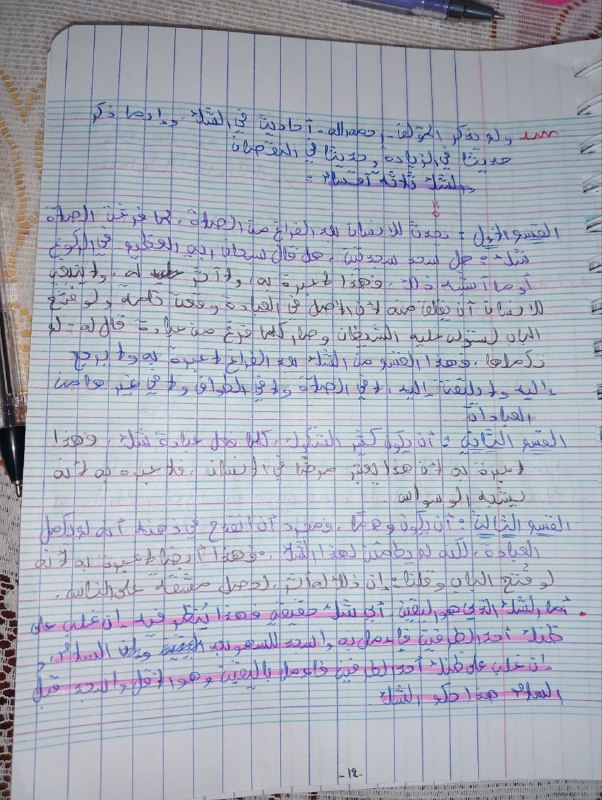 ولم يذكر المؤلف - رحمه الله - أحاديث في الشك، وإنما ذكر
حديثا في الزيادة وحديثا في النقصان
والشك ثلاثة أقسام:
القسم الأول: يحدث للإنسان بعد الفراغ من الصلاة، لما فرغ من الصلاة
شك: هل سجد سجدتين، هل قال سبحان ربي العظيم في الركوع
أو ما أشبه ذلك، فهذا لا عبرة به، ولا أثر له، ولا ينبغي
للإنسان أن يلتفت إليه لأن الأصل في العبادة وقعت تامة، ولو فتح
الباب لستولى عليه الشيطان وصار كلما فرغ من عبادة قال له: لم
تكملها، فهذا القسم من الشك بعد الفراغ لا عبرة به ولا يرجع
إليه ولا يلتفت إليه، لا في الصلاة ولا في الطواف ولا في غيرها من
العبادات.
القسم الثاني: أن يكون كثير الشكوك، كلما فعل عبادة شك، فهذا
لا عبرة به لأن هذا يعتبر مرضا في الإنسان، فلا عبرة به لأنه
يشبه الوسواس.
القسم الثالث: أن يكون وهما، فمجرد أن انقدح في ذهنه أنه لم يكمل
العبادة، لكنه لم يطمئن لهذا الشك، فهذا أيضا لا عبرة به لأنه
لو فتح الباب وقلنا: إن ذلك له أثر، لحصل مشقة على الناس.
أما الشك الذي هو اليقين أي شك حقيقي فهذا يُنظر فيه إن غلب على
ظنك أحد الطرفين فاعمل به واسجد للسهو بعد السلام، و
إن غلب على ظنك أحد الطرفين فاعمل باليقين وهو الأقل واسجد قبل
السلام هذا حكم الشك
-١٤-